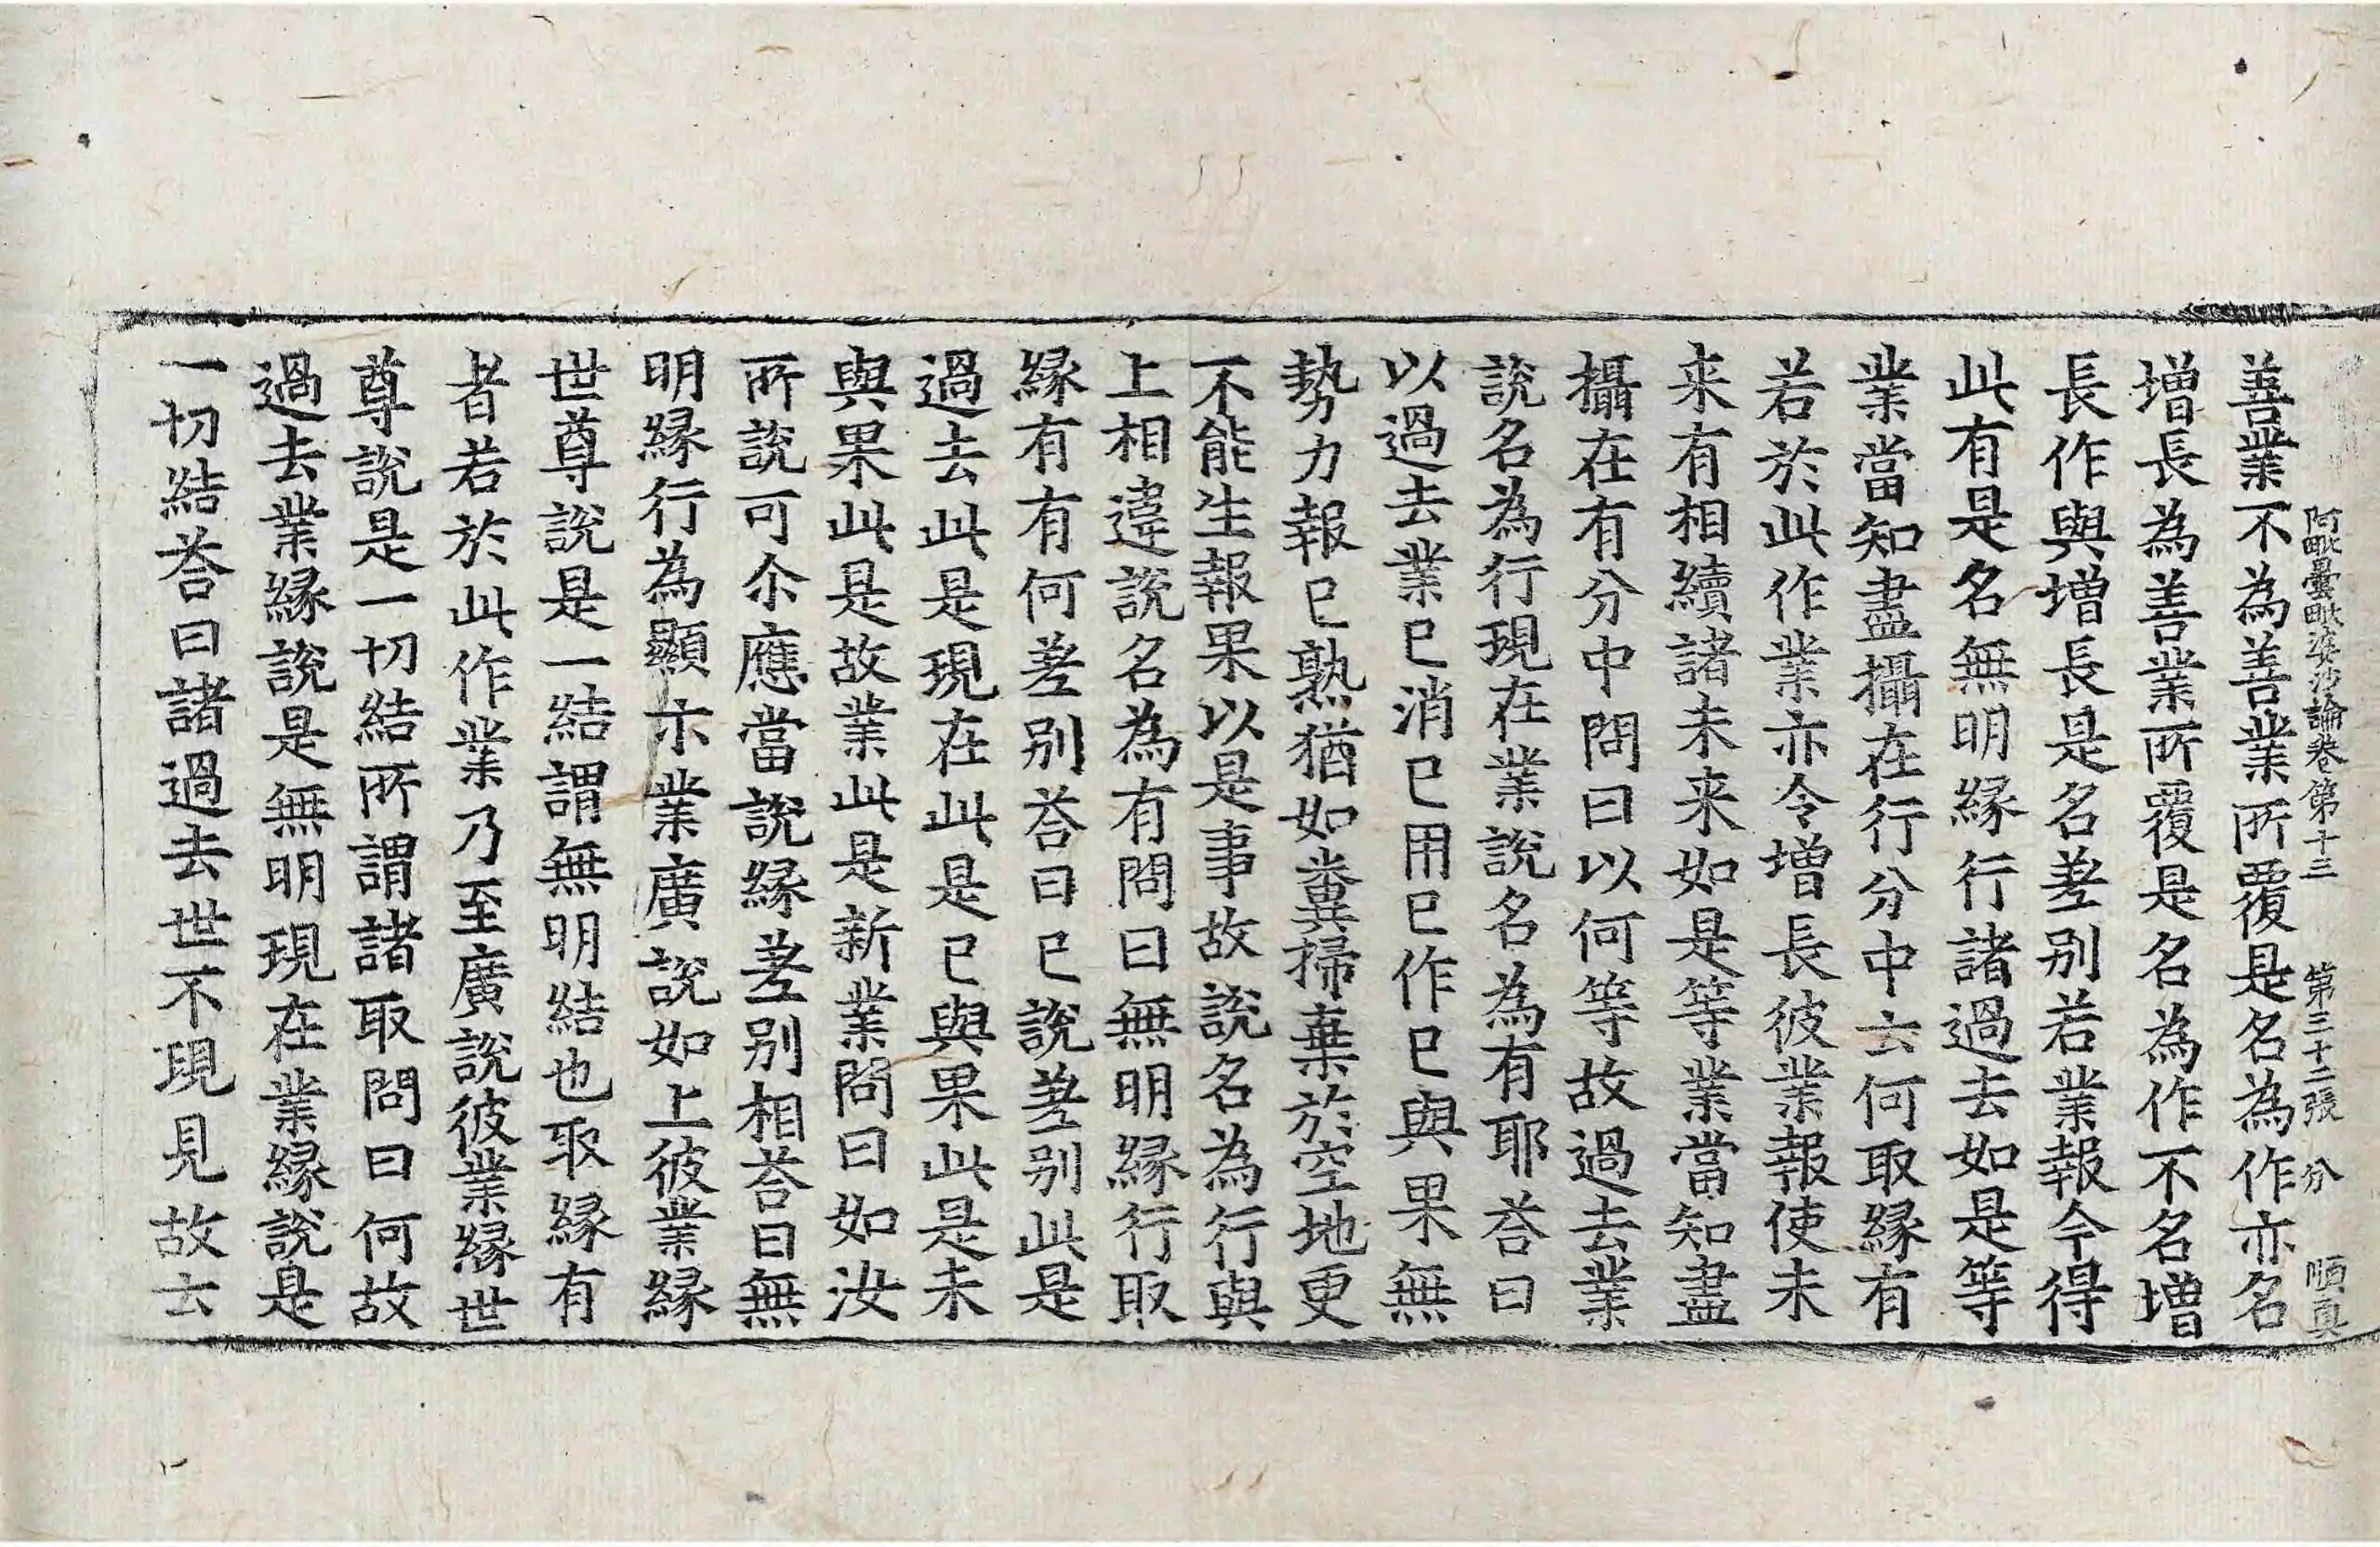 阿毗曇毗婆沙論卷第十三 第三十二張 分 順真
善業不為善業所覆是名為作亦名
增長為善業所覆是名為作不名增
長作與增長是名差别若業報令得
此有是名無明縁行諸過去如是等
業當知盡攝在行分中云何取縁有
若於此作業亦令增長彼業報使未
来有相續諸未来如是等業當知盡
攝在有分中問曰以何等故過去業
說名為行現在業說名為有耶荅曰
以過去業已消已用已作已與果無
勢力報已熟猶如糞掃棄於空地更
不能生報果以是事故說名為行與
上相違說名為有問曰無明縁行取
縁有有何差别荅曰已說差别此是
過去此是現在此是已與果此是未
與果此是故業此是新業問曰如汝
所說可尒應當說縁差别相荅曰無
明縁行為顯示業廣說如上彼業縁
世尊說是一結謂無明結也取縁有
者若於此作業乃至廣說彼業縁世
尊說是一切結所謂諸取問曰何故
過去業縁說是無明現在業縁說是
一切結荅曰諸過去世不現見故云